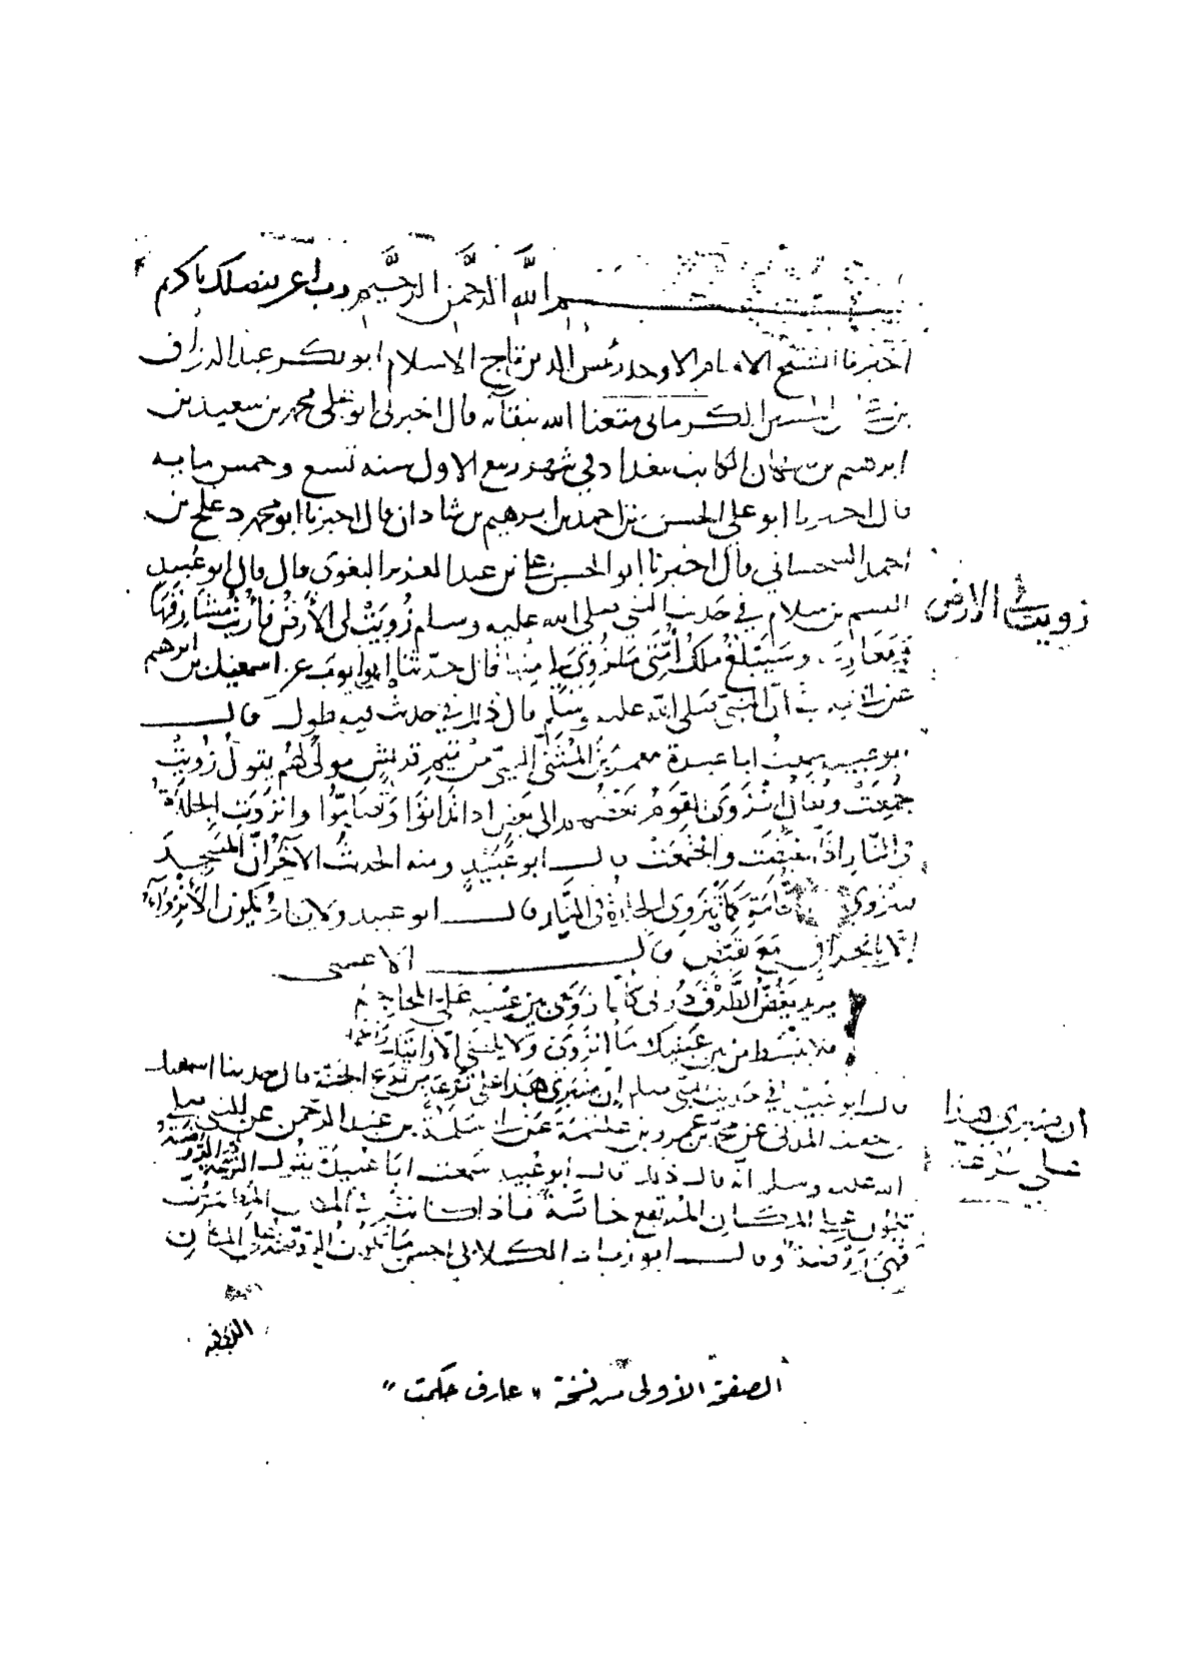 بسم الله الرحمن الرحيم رب اعن بفضلك يا كريم
اخبرنا الشيخ الامام الاوحد رئيس الدين تاج الاسلام ابو بكر عبد الرزاق
بن الكرماني متعنا الله ببقائه قال اخبرني ابو علي محمد بن سعيد بن
ابرهيم بن نبهان الكاتب ببغداد في شهر ربيع الاول سنه تسع وخمس مايه
قال اخبرنا ابو علي الحسن بن احمد بن ابرهيم بن شاذان قال اخبرنا ابو محمد دعلج بن
احمد السجستاني قال اخبرنا ابو الحسن علي بن عبد العزيز البغوي قال قال ابو عُبيد
القسم بن سلام في حديث النبي صلى الله عليه وسلم زُوِيَتْ لي الأرضُ فأُريتُ مشارقها
ومغاربها وسيبلغ ملك أمتي ما زُوي لي منها قال حدثنا ابو ايوب عن اسمعيل بن ابرهيم
عن أن النبي صلى الله عليه وسلم قال ذلك في حديث فيه طول قال
ابو عبيد سمعت ابا عبيدة معمر بن المثنى التيمي من تيم قريش مولى لهم يقول زُويت
جُمِعَتْ ويقال انزوى القوم بعضهم الى بعض اذا تدانوا وتضاموا وانزوت الجلدة
في النار اذا انقبضت واجتمعت قال ابو عُبَيْدٍ ومنه الحديث الآخر انّ المسجد
لينزوي من النخامة كما تنزوي الجلدة في النار قال ابو عبيد ولا يكاد يكون الانزواء
إلا بانحراف مع تقبض قال الاعشى
يزيد يغض الطرف دوني كأنما زوى بين عينيه علي المحاجم
فلا ينبسط من بين عينيك ما انزوى ولا تلقني الا وانفك راغم
قال ابو عبيد في حديث النبي صلعم إن منبري هذا على ترعة من ترع الجنة قال حدثنا اسمعيل
بن جعفر المدني عن محمد بن عمرو بن علقمة عن ابي سلمة بن عبد الرحمن عن النبي صلى
الله عليه وسلم انه قال ذلك قال ابو عُبيد سمعت ابا عُبيدة يقول الترعة الروضة
تكون على المكان المرتفع خاصة فاذا كانت في المكان المطمئن
فهي روضة وقال ابو زياد الكلابي احسن ما تكون الروضة على المكان
زويت لي الارض
ان منبري هذا
على ترعة
الصفحة الأولى من نسخة " عارف حكمت "